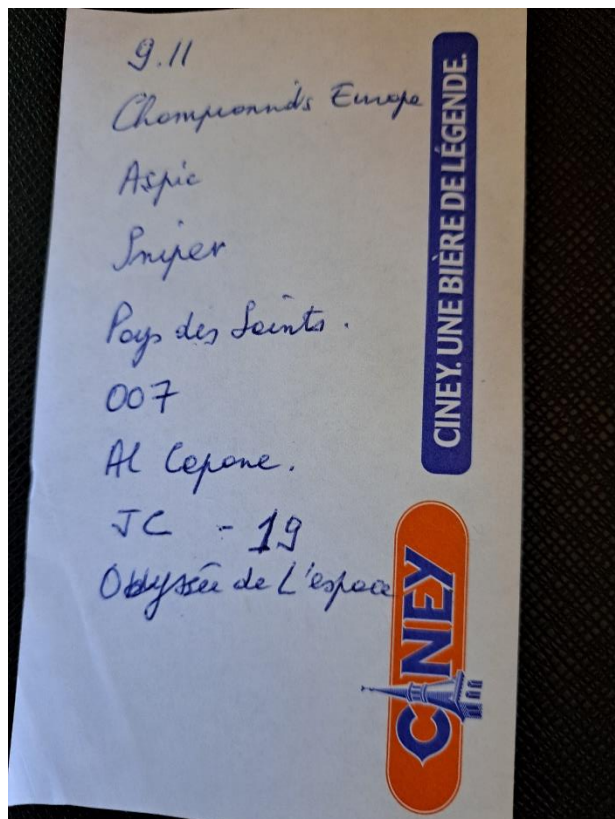 9.11
Championnds Europe
Aspic
Sniper
Pays des Saints.
007
Al Capone.
JC - 19
Odyssée de L'espace
CINEY. UNE BIÈRE DE LÉGENDE.
CINEY